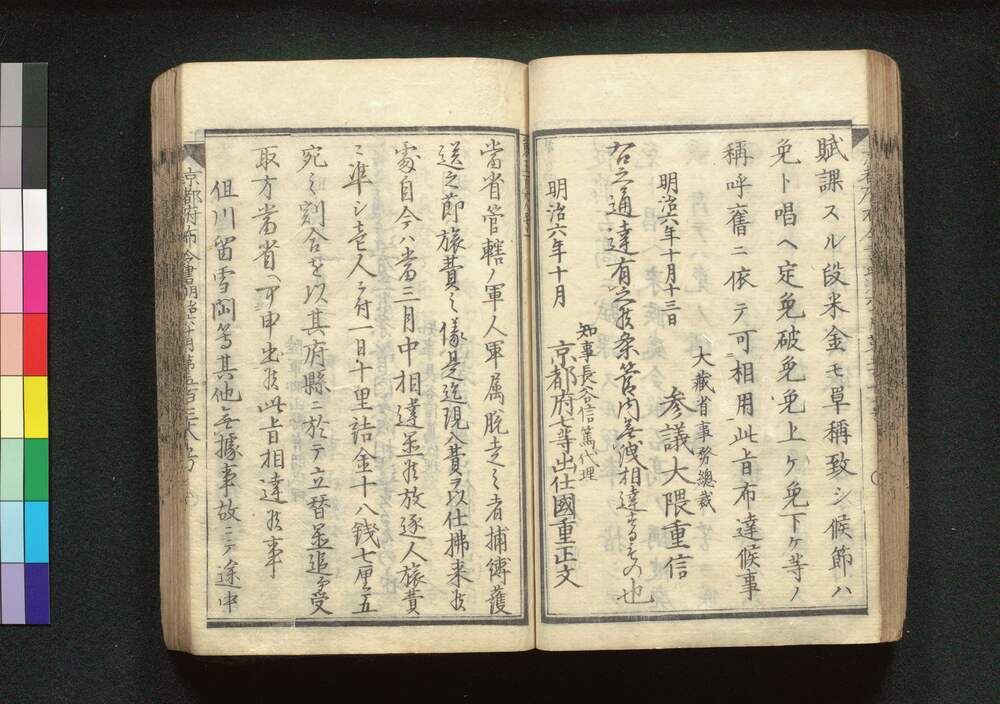 賦課スル段米金モ草稱致シ候節ハ
免ト唱ヘ定免破免免上ケ免下ケ等ノ
稱呼舊ニ依テ可相用此旨布達候事
大藏省事務總裁
明治六年十月十三日
参議大隈重信
右之通達有之候条管内無洩相達するもの也
知事長谷信篤代理
明治六年十月
京都府七等出仕國重正文
當省管轄ノ軍人軍属脱走之者捕縛護
送之節旅費之儀是迄現入費ヲ以仕拂来候
處自今ハ當三月中相達置候放逐人旅費
ニ準シ壱人ニ付一日十里詰金十八銭七厘五
宛之割合を以其府縣ニ於テ立替置追而受
取方當省ヘ可申出候此旨相達候事
但川留雪閉等其他無據事故ニテ途中
京都府布令書明治六年十月第五百三十八号